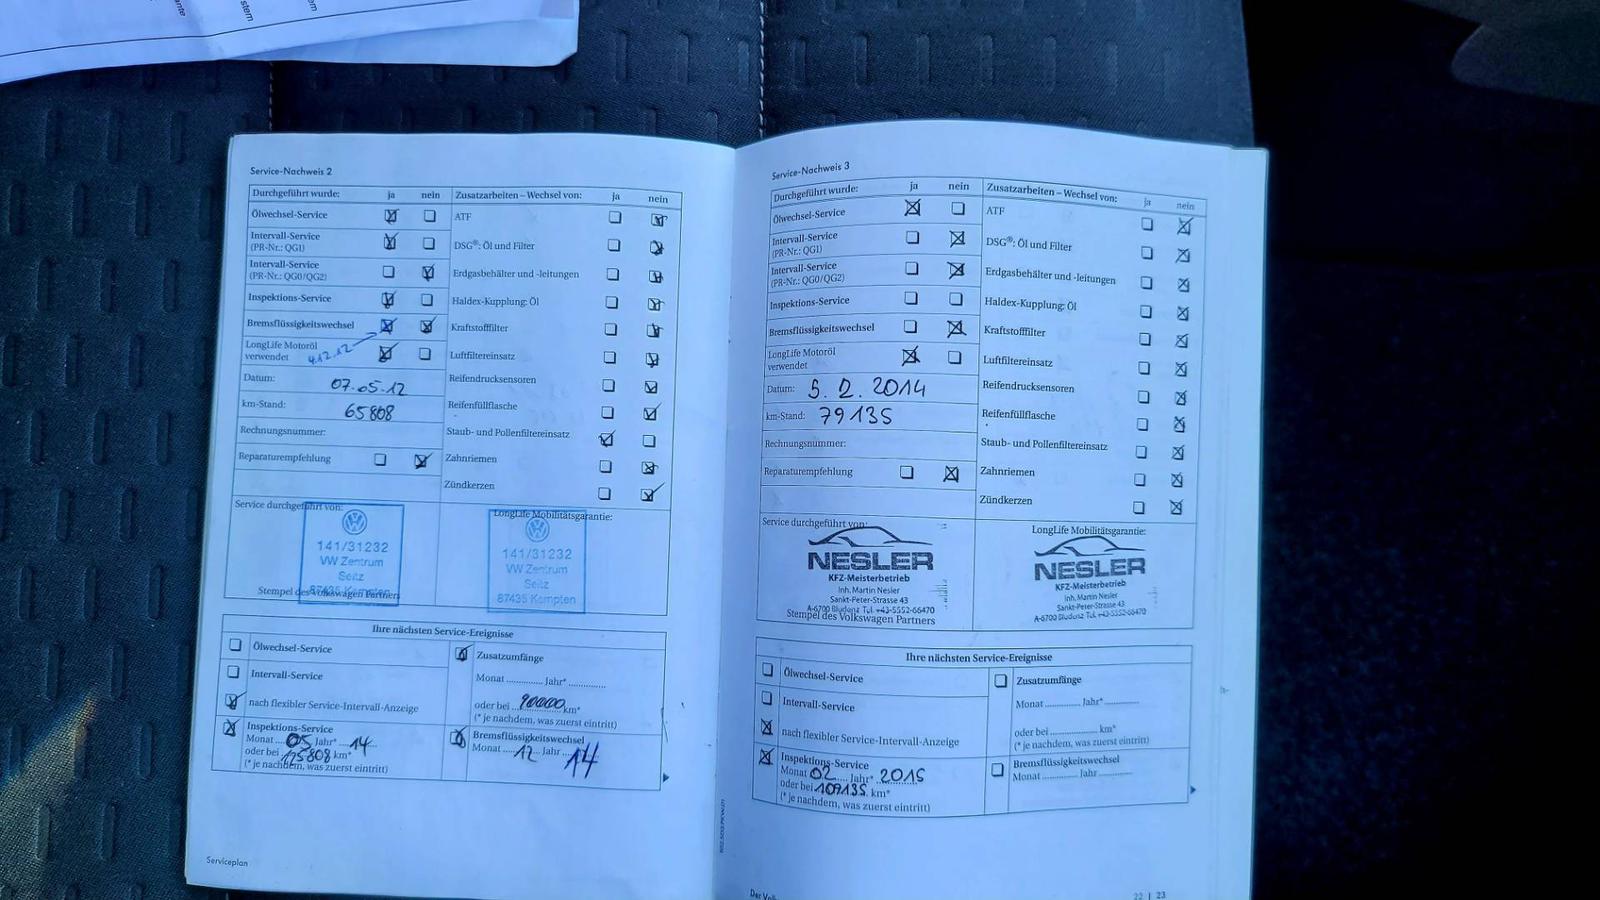 stem
Service-Nachweis 2
Durchgeführt wurde: ja nein
Ölwechsel-Service
Intervall-Service
(PR-Nr.: QG1)
Intervall-Service
(PR-Nr.: QG0/QG2)
Inspektions-Service
Bremsflüssigkeitswechsel
4.12.12
LongLife Motoröl
verwendet
Datum: 07.05.12
km-Stand: 65808
Rechnungsnummer:
Reparaturempfehlung
Zusatzarbeiten – Wechsel von: ja nein
ATF
DSG®: Öl und Filter
Erdgasbehälter und -leitungen
Haldex-Kupplung: Öl
Kraftstofffilter
Luftfiltereinsatz
Reifendrucksensoren
Reifenfüllflasche
Staub- und Pollenfiltereinsatz
Zahnriemen
Zündkerzen
Service durchgeführt von:
141/31232
VW Zentrum
Seitz
87435 Kempten
Stempel des Volkswagen Partners
LongLife Mobilitätsgarantie:
141/31232
VW Zentrum
Seitz
87435 Kempten
Ihre nächsten Service-Ereignisse
Ölwechsel-Service
Intervall-Service
nach flexibler Service-Intervall-Anzeige
Inspektions-Service
Monat 05 Jahr* 14
oder bei 125808 km*
(* je nachdem, was zuerst eintritt)
Zusatzumfänge
Monat ............ Jahr* ............
oder bei 90000 km*
(* je nachdem, was zuerst eintritt)
Bremsflüssigkeitswechsel
Monat 12 Jahr 14
Serviceplan
Service-Nachweis 3
Durchgeführt wurde: ja nein
Ölwechsel-Service
Intervall-Service
(PR-Nr.: QG1)
Intervall-Service
(PR-Nr.: QG0/QG2)
Inspektions-Service
Bremsflüssigkeitswechsel
LongLife Motoröl
verwendet
Datum: 5.2.2014
km-Stand: 79135
Rechnungsnummer:
Reparaturempfehlung
Zusatzarbeiten – Wechsel von: ja nein
ATF
DSG®: Öl und Filter
Erdgasbehälter und -leitungen
Haldex-Kupplung: Öl
Kraftstofffilter
Luftfiltereinsatz
Reifendrucksensoren
Reifenfüllflasche
Staub- und Pollenfiltereinsatz
Zahnriemen
Zündkerzen
Service durchgeführt von:
NESLER
KFZ-Meisterbetrieb
Inh. Martin Nesler
Sankt-Peter-Strasse 43
A-6700 Bludenz Tel. +43-5552-66470
Stempel des Volkswagen Partners
LongLife Mobilitätsgarantie:
NESLER
KFZ-Meisterbetrieb
Inh. Martin Nesler
Sankt-Peter-Strasse 43
A-6700 Bludenz Tel. +43-5552-66470
Ihre nächsten Service-Ereignisse
Ölwechsel-Service
Intervall-Service
nach flexibler Service-Intervall-Anzeige
Inspektions-Service
Monat 02 Jahr* 2015
oder bei 109135 km*
(* je nachdem, was zuerst eintritt)
Zusatzumfänge
Monat ............ Jahr* ............
oder bei ............ km*
(* je nachdem, was zuerst eintritt)
Bremsflüssigkeitswechsel
Monat ............ Jahr ............
22 | 23